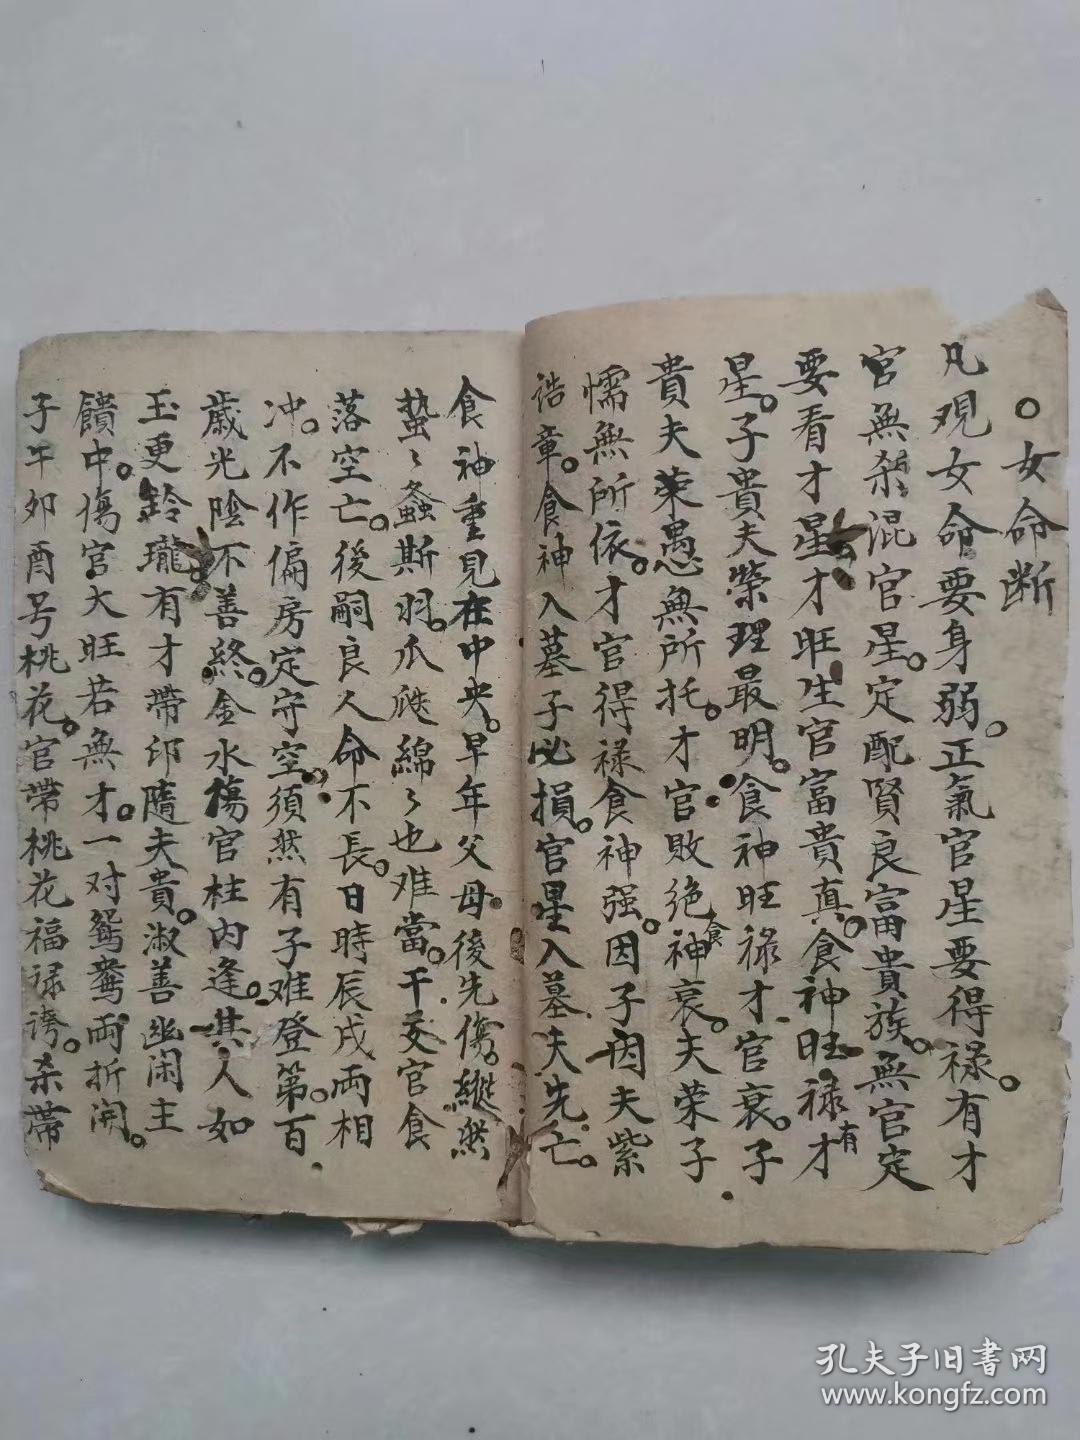 ○女命断
凡观女命要身弱。正氣官星要得禄。有才
官無杀混官星。定配賢良富貴族。無官定
要看才星才旺生官富貴真。食神旺禄有才
星。子貴夫榮理最明。食神旺禄才官衰。子
貴夫荣愚無所托。才官敗绝食神衰。夫荣子
懦無所依。才官得禄食神强。因子因夫紫
诰章。食神入墓子必損。官星入墓夫先亡。
食神重見在中央。早年父母後先傷。縱然
蛰々螽斯羽。瓜瓞綿々也难當。干支官食
落空亡。後嗣良人命不長。日時辰戌兩相
冲。不作偏房定守空。須然有子难登第。百
歲光陰不善終。金水傷官柱内逢。其人如
玉更鈴瓏有才帶印隨夫貴。淑善幽闲主
饋中。傷官大旺若無才。一对鸳鸯兩折開。
子午卯酉号桃花。官帶桃花福禄誇。杀帶
孔夫子旧書网
www.kongfz.com